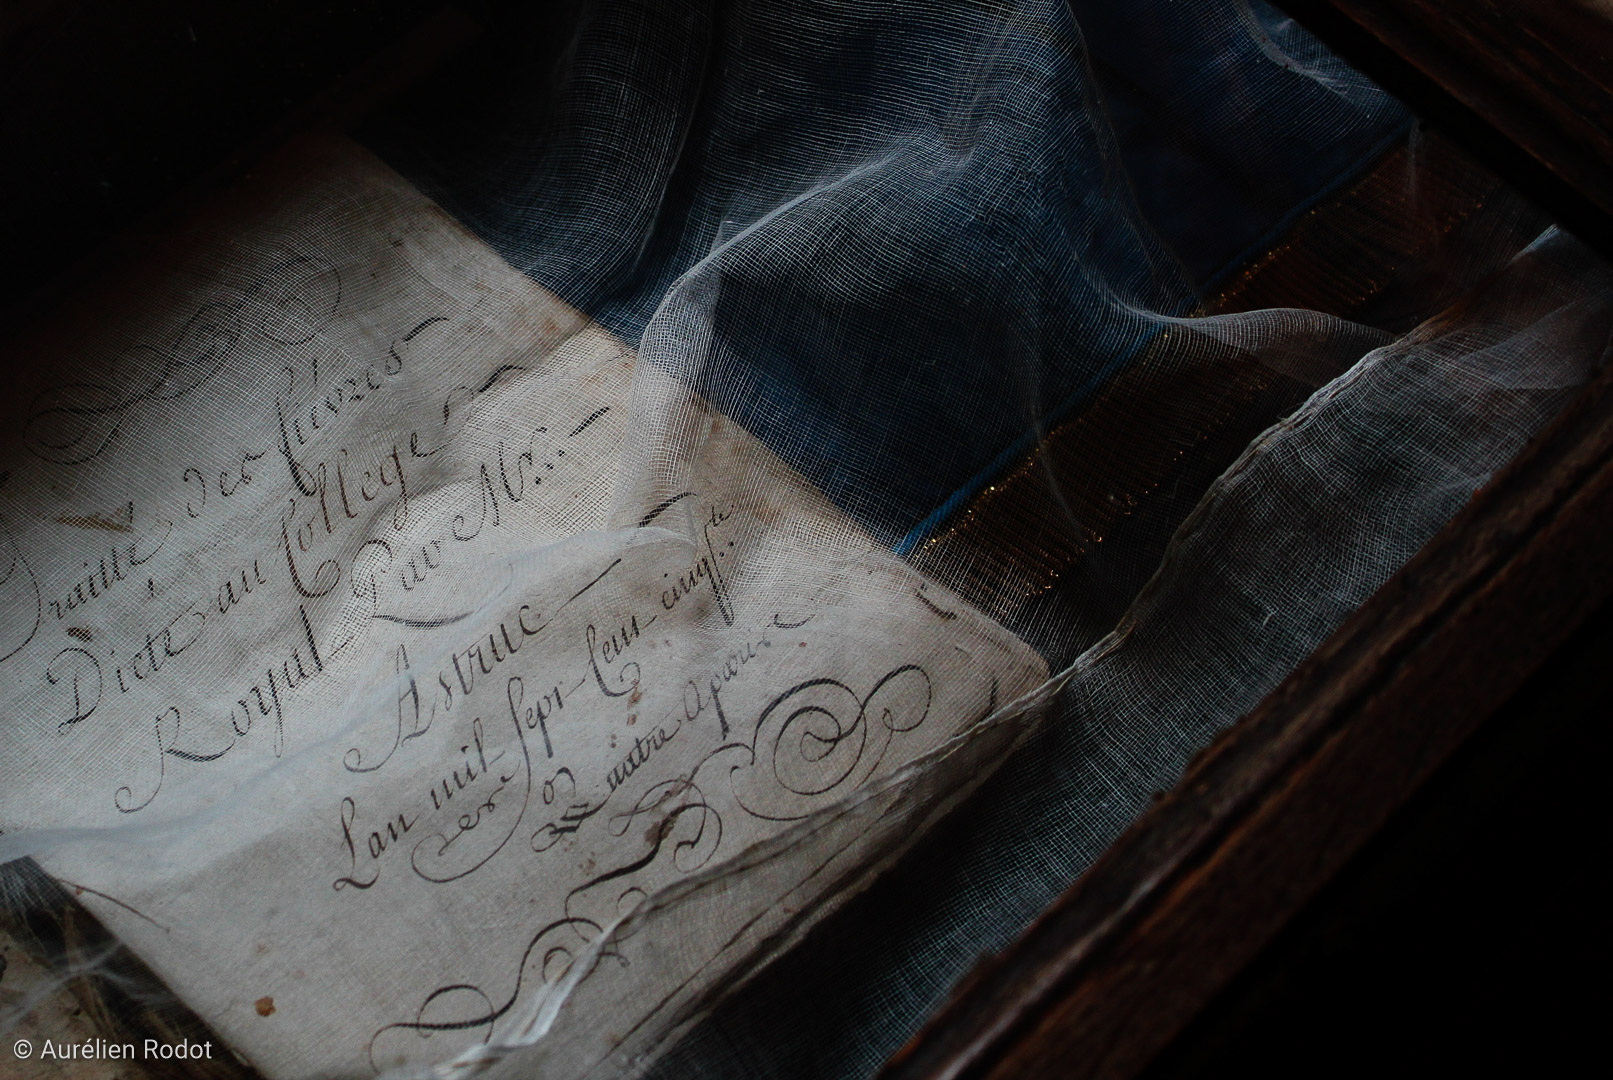 Traitté des fiévres
Dicté au Collége
Royal Par Mr.
Astruc
Lan mil sept Cent cinq.te
Quatre a paris
© Aurélien Rodot